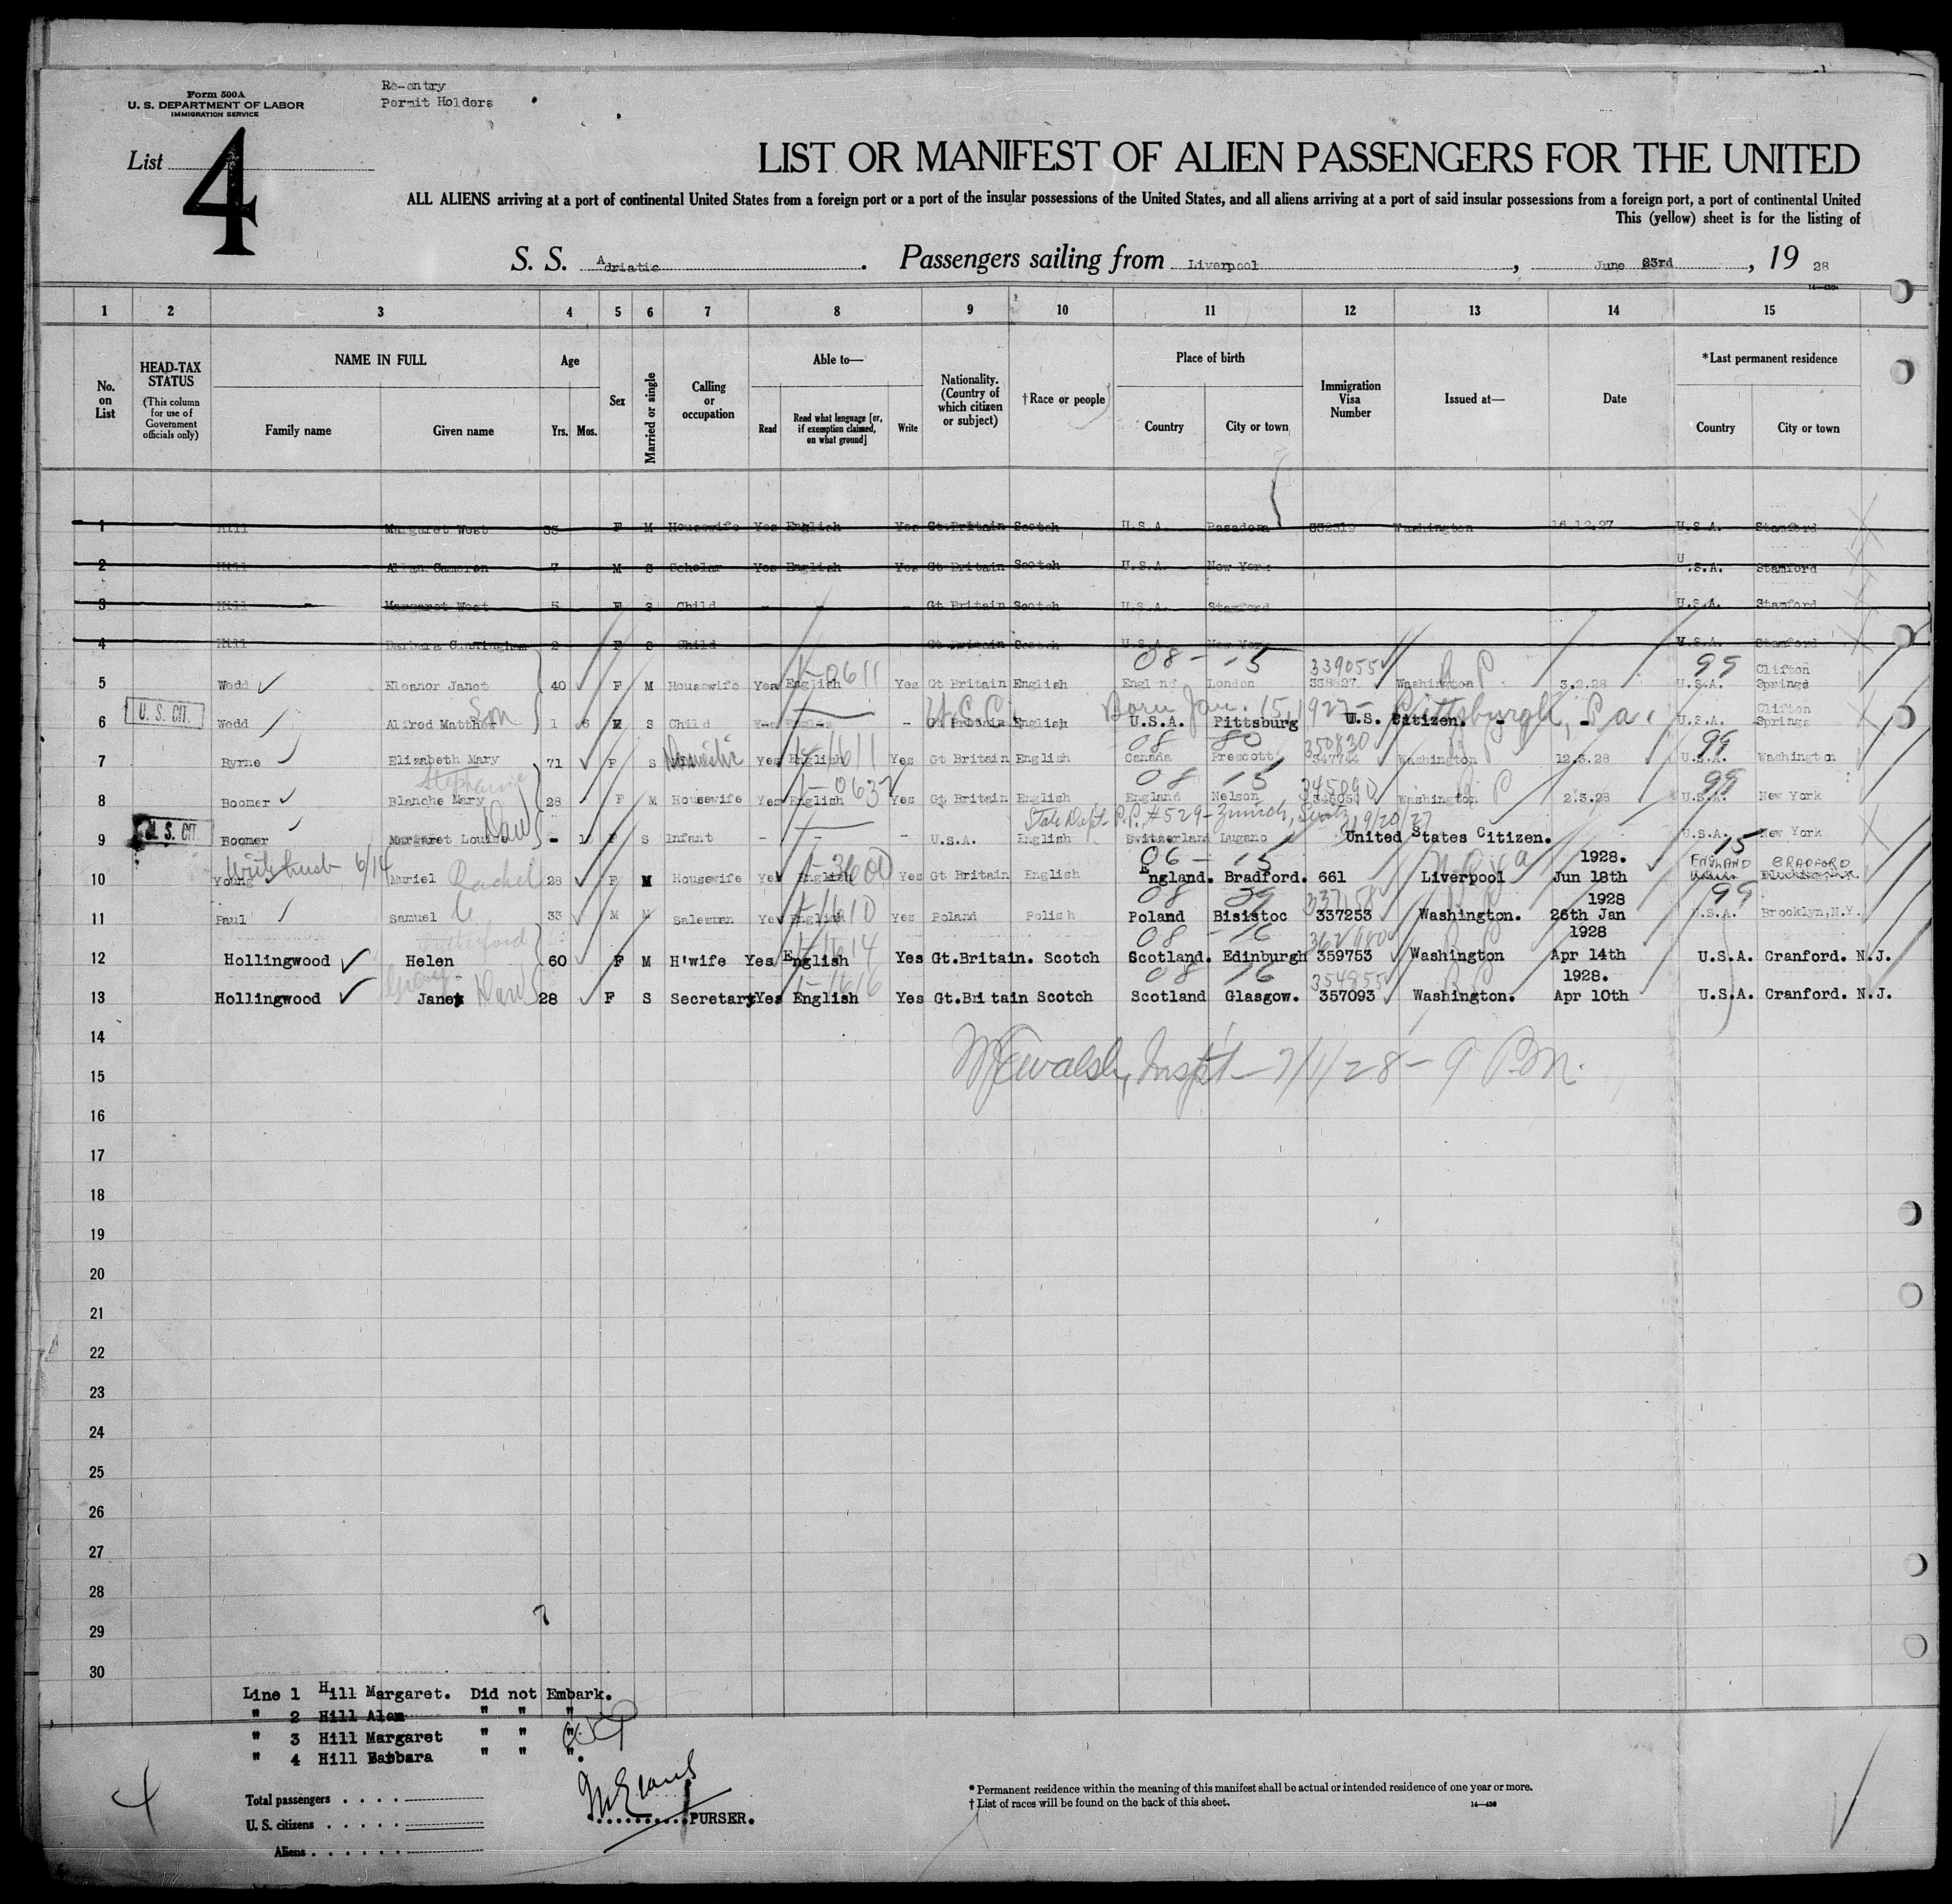 Form 500A
U. S. DEPARTMENT OF LABOR
IMMIGRATION SERVICE
Re-entry
Permit Holders
List 4
LIST OR MANIFEST OF ALIEN PASSENGERS FOR THE UNITED
ALL ALIENS arriving at a port of continental United States from a foreign port or a port of the insular possessions of the United States, and all aliens arriving at a port of said insular possessions from a foreign port, a port of continental United
This (yellow) sheet is for the listing of
S. S. Adriatic. Passengers sailing from Liverpool, June 23rd, 19 28
14—430
1 2 3 4 5 6 7 8 9 10 11 12 13 14 15
No. on List
HEAD-TAX STATUS (This column for use of Government officials only)
NAME IN FULL Family name Given name
Age Yrs. Mos.
Sex
Married or single
Calling or occupation
Able to— Read Read what language [or, if exemption claimed, on what ground] Write
Nationality. (Country of which citizen or subject)
†Race or people
Place of birth Country City or town
Immigration Visa Number
Issued at—
Date
*Last permanent residence Country City or town
1 Hill Margaret West 35 F M Housewife Yes English Yes Gt.Britain Scotch U.S.A. Pasadena 332319 Washington 16.12.27 U.S.A. Stamford
2 Hill Allan Cameron 7 M S Scholar Yes English Yes Gt Britain Scotch U.S.A. New York U.S.A. Stamford
3 Hill Margaret West 5 F S Child - - - Gt Britain Scotch U.S.A. Stamford U.S.A. Stamford
4 Hill Barbara Cunningham 2 F S Child Gt.Britain Scotch U.S.A. New York U.S.A. Stamford
08 - 15 339055 R P. 99 Clifton
5 Wedd Eleanor Janet 40 F M Housewife Yes English Yes Gt Britain English England London 338627 Washington 3.2.28 U.S.A. Springs
U. S. CIT. Son U.S.C. Born Jan. 15, 1927 - Pittsburgh, Pa. Clifton
6 Wedd Alfred Matthew 1 6 M S Child - Gt Britain English U.S.A. Pittsburg U.S. Citizen. - - U.S.A. Springs
Domestic 08 80 350830 R P 99
7 Byrne Elizabeth Mary 71 F S Yes English Yes Gt Britain English Canada Prescott 347744 Washington 12.3.28 U.S.A. Washington
Stephanie 1-0637 08 15 345090 R P 99
8 Boomer Blanche Mary 28 F M Housewife Yes English Yes Gt Britain English England Nelson Washington 2.3.28 U.S.A. New York
U. S. CIT. Dau State Dept. P.P. #529 - Zurich, 9/20/27
9 Boomer Margaret Louise - F S Infant - - - U.S.A. English Switzerland Lugano United States Citizen. U.S.A. New York
6/14 Rachel 1-3600 06 - 15 1928. 15 ENGLAND BRADFORD
10 Young Muriel 28 F M Housewife Yes English Yes Gt Britain English England. Bradford. 661 Liverpool Jun 18th
08 39 1928 99
11 Paul Samuel 33 M M Salesman Yes English Yes Poland Polish Poland Bisistoc 337253 Washington. 26th Jan U.S.A. Brooklyn,N.Y.
08 - 16 362980 R P 1928
12 Hollingwood Helen 60 F M H'wife Yes English Yes Gt.Britain. Scotch Scotland. Edinburgh 359753 Washington Apr 14th U.S.A. Cranford. N.J.
Dau 1-1616 08 16 354855 R P 1928.
13 Hollingwood Janet 28 F S Secretary Yes English Yes Gt.Britain Scotch Scotland Glasgow. 357093 Washington. Apr 10th U.S.A. Cranford. N.J.
14
Walsh, Inspt - 7/1/28 - 9 P.M.
15
16
17
18
19
20
21
22
23
24
25
26
27
28
29
30
Line 1 Hill Margaret. Did not Embark.
" 2 Hill Alan " " "
" 3 Hill Margaret " " "
" 4 Hill Babbara " " ".
Total passengers
U. S. citizens
Aliens
PURSER.
* Permanent residence within the meaning of this manifest shall be actual or intended residence of one year or more.
† List of races will be found on the back of this sheet.
14—430